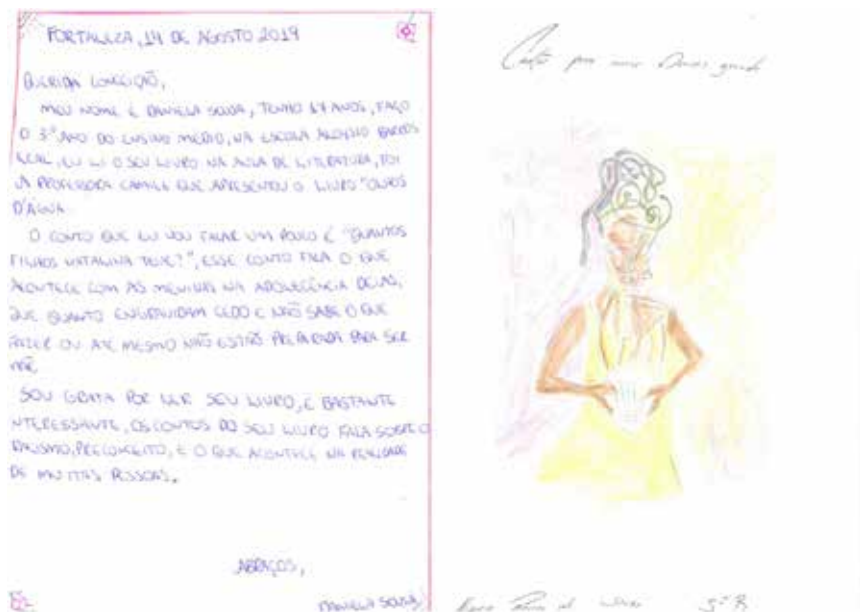 FORTALEZA, 14 DE AGOSTO 2019
QUERIDA CONCEIÇÃO,
MEU NOME É DANIELA SOUSA, TENHO 17 ANOS, FAÇO
O 3º ANO DO ENSINO MÉDIO, NA ESCOLA ALOYSIO BARROS
LEAL, EU LI O SEU LIVRO NA AULA DE LITERATURA, FOI
A PROFESSORA CAMILA QUE APRESENTOU O LIVRO "OLHOS
D'ÁGUA
O CONTO QUE EU VOU FALAR UM POUCO É "QUANTOS
FILHOS NATALINA TEVE?", ESSE CONTO FALA O QUE
ACONTECE COM AS MENINAS NA ADOLESCÊNCIA DELAS,
QUE QUANTO ENGRAVIDAM CEDO E NÃO SABE O QUE
FAZER OU ATÉ MESMO NÃO ESTÃO PREPARADA PARA SER
MÃE.
SOU GRATA POR LER SEU LIVRO, É BASTANTE
INTERESSANTE, OS CONTOS DO SEU LIVRO FALA SOBRE O
RACISMO, PRECONCEITO, E O QUE ACONTECE NA REALIDADE
DE MUITAS PESSOAS.
ABRAÇOS,
DANIELA SOUSA
Carta por uma